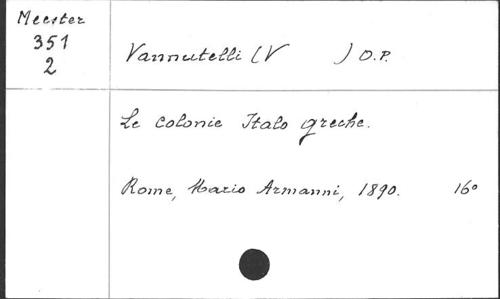 Meester
351
2
Vannutelli (V ) O.P.
Le colonie Italo greche.
Rome, Mario Armanni, 1890. 16º